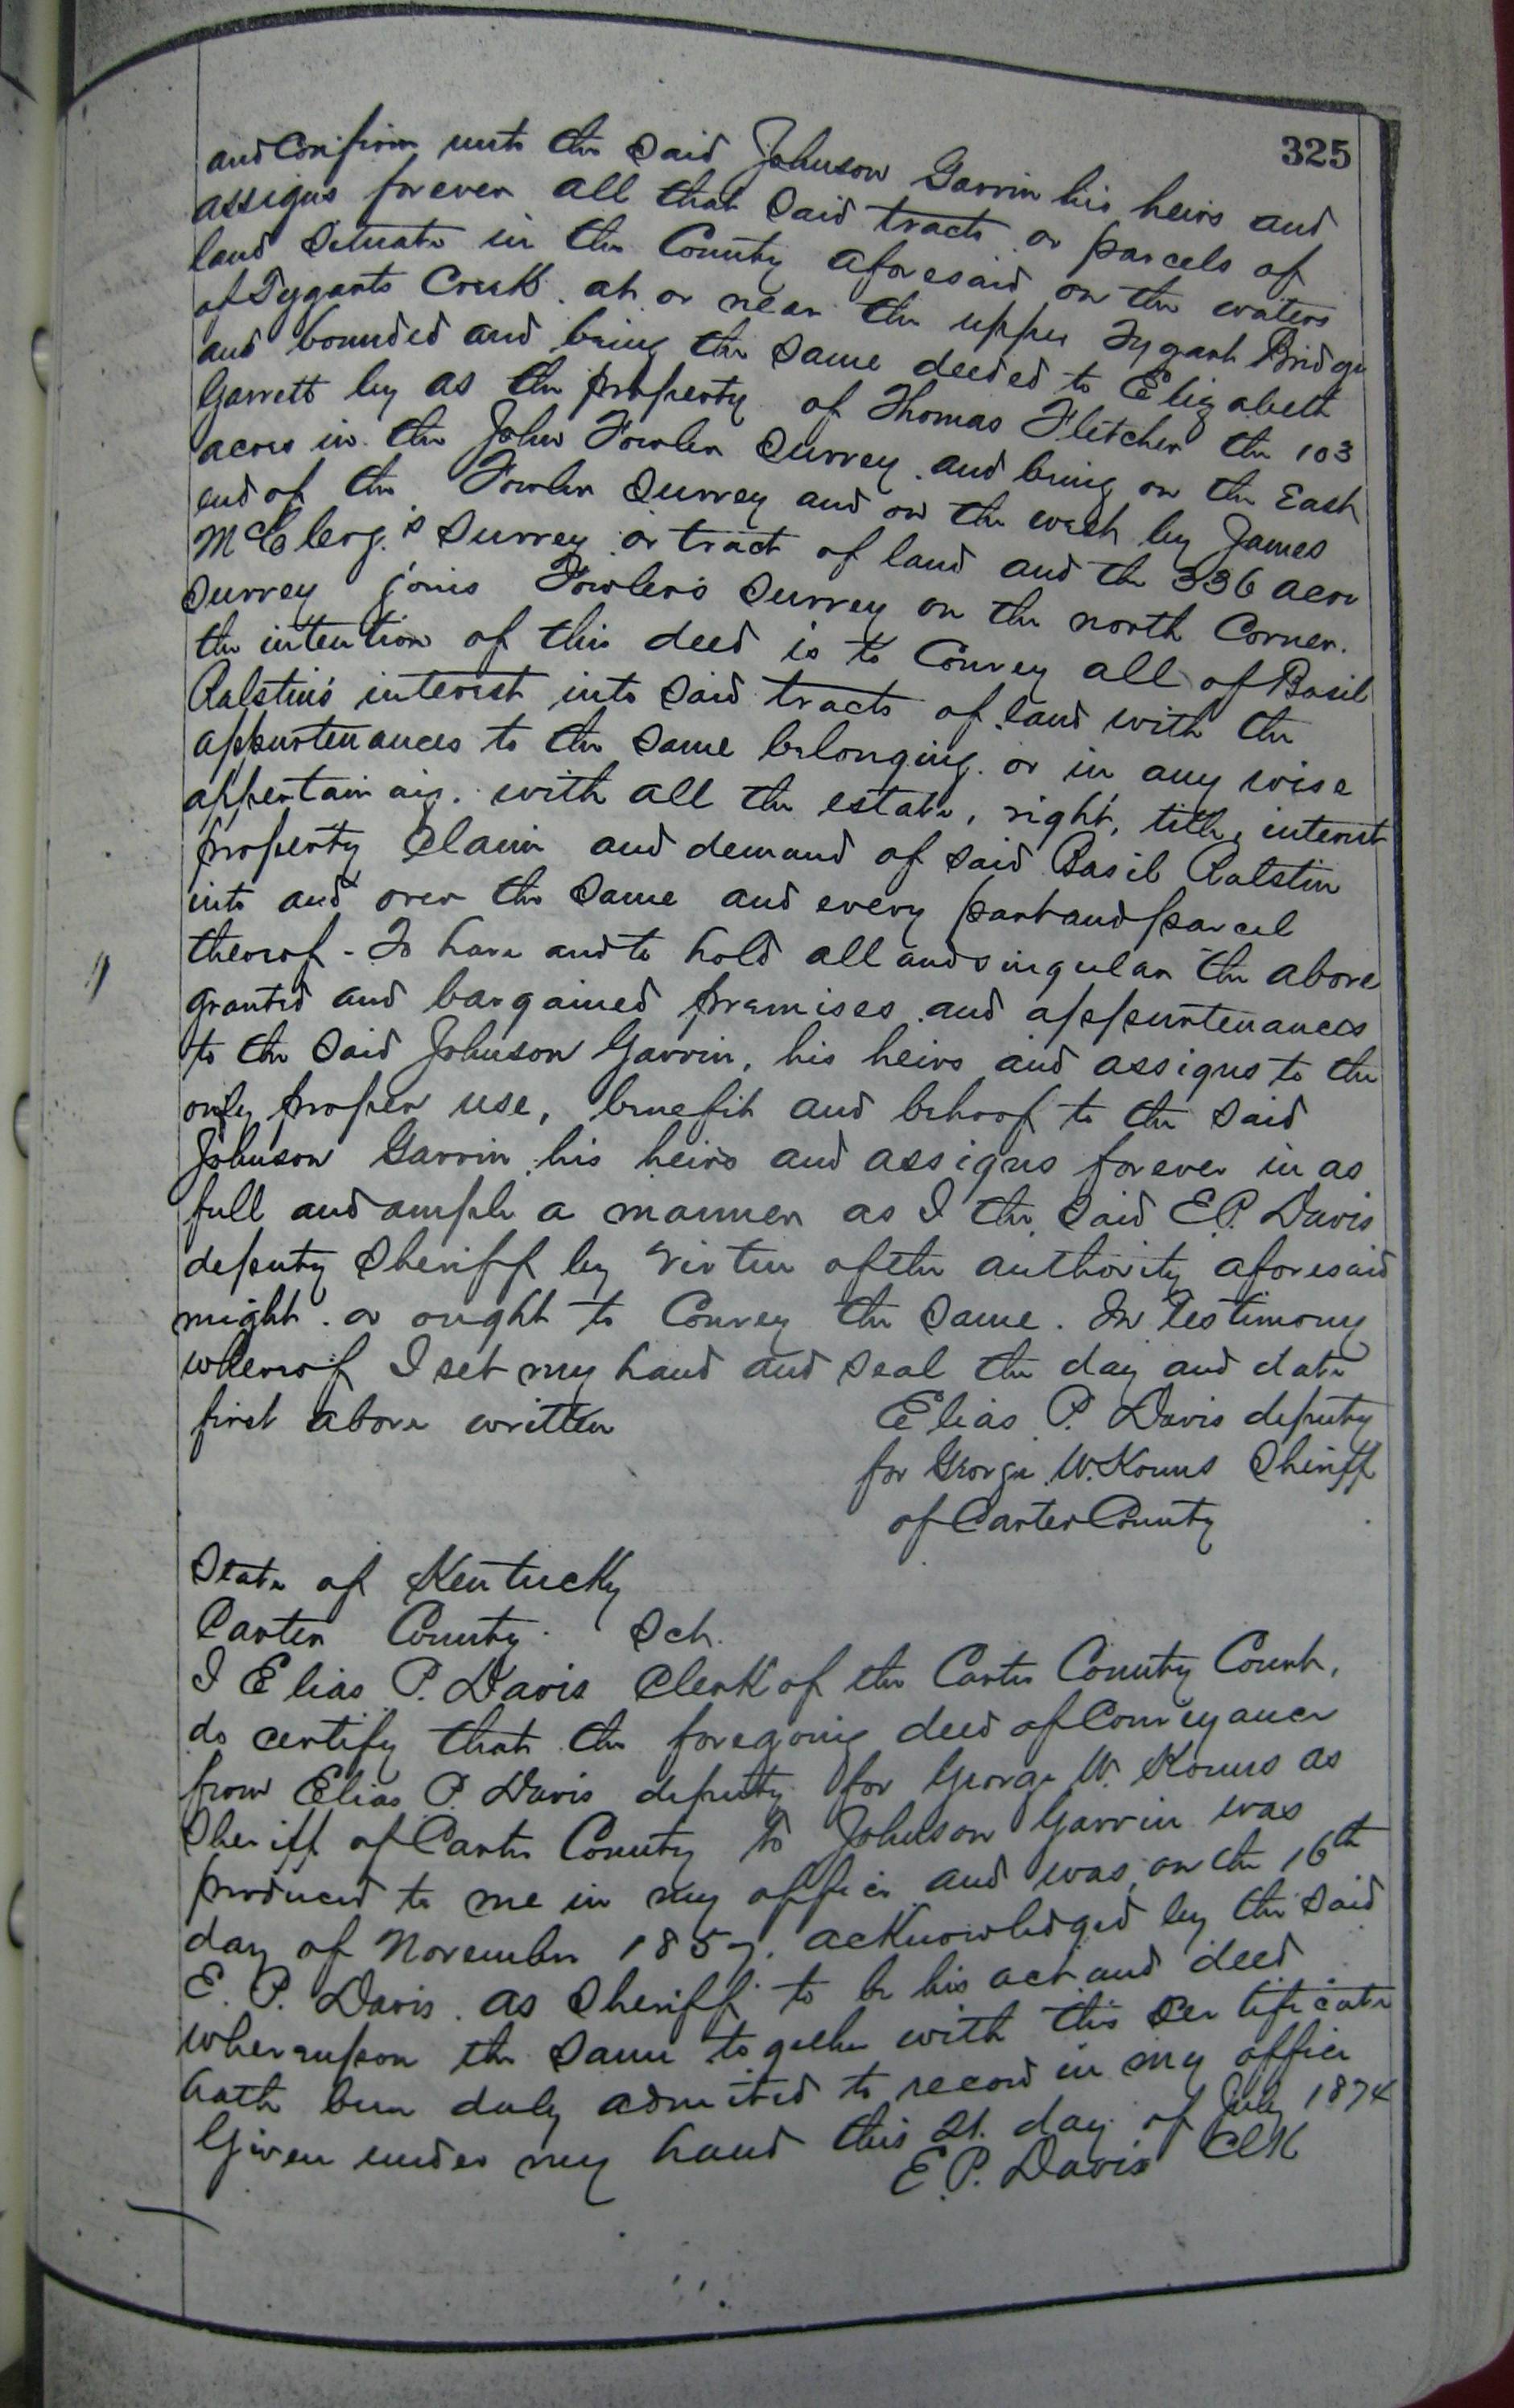 325
and Confirm unto the said Johnson Garvin his heirs and
assigns forever all that said tracts or parcels of
land Situate in the County aforesaid on the waters
of Tygarts Creek. at or near the upper Tygart Bridge
and bounded and being the same deeded to Elizabeth
Garrett by as the property of Thomas Fletcher the 103
acres in the John Fowler Survey. and being on the East
end of the Fowler Survey and on the west by James
Survey or tract of land and the 336 acre
Survey joins Fowler's Survey on the north Corner.
the intention of this deed is to Convey all of Basil
Ralstin's interest into said tracts of land with the
appurtenances to the same belonging. or in any wise
appertaining. with all the estate, right, title, interest
property Claim and demand of said Basil Ralstin
into and over the same and every part and parcel
thereof - To have and to hold all and singular the above
granted and bargained premises and appurtenances
to the said Johnson Garvin, his heirs and assigns to the
only proper use, benefit and behoof to the said
Johnson Garvin his heirs and assigns forever in as
full and ample a manner as I the said E.P. Davis
deputy Sheriff by virtue of the authority aforesaid
might. or ought to Convey the same. In Testimony
whereof I set my hand and seal the day and date
first above written
Elias P. Davis deputy
for George W. Kouns Sheriff
of Carter County
State of Kentucky
Carter County. Sct.
I Elias P. Davis Clerk of the Carter County Court,
do certify that the foregoing deed of Conveyance
from Elias P. Davis deputy for George W. Kouns as
Sheriff of Carter County to Johnson Garvin was
produced to me in my office and was, on the 16th
day of November 1857. acknowledged by the said
E. P. Davis. as Sheriff to be his act and deed
whereupon the same together with this Certificate
hath been duly admitted to record in my office
Given under my hand this 21. day of July 1874
E. P. Davis Clk